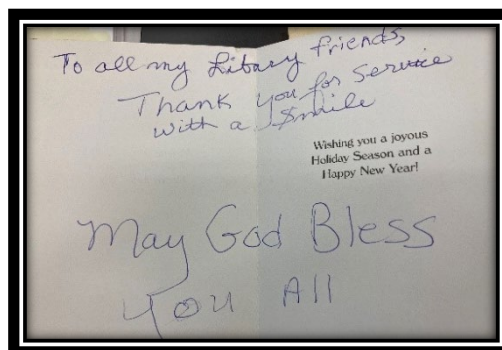 To all my Libary friends,
Thank you for Service
with a Smile
Wishing you a joyous
Holiday Season and a
Happy New Year!
May God Bless
You All